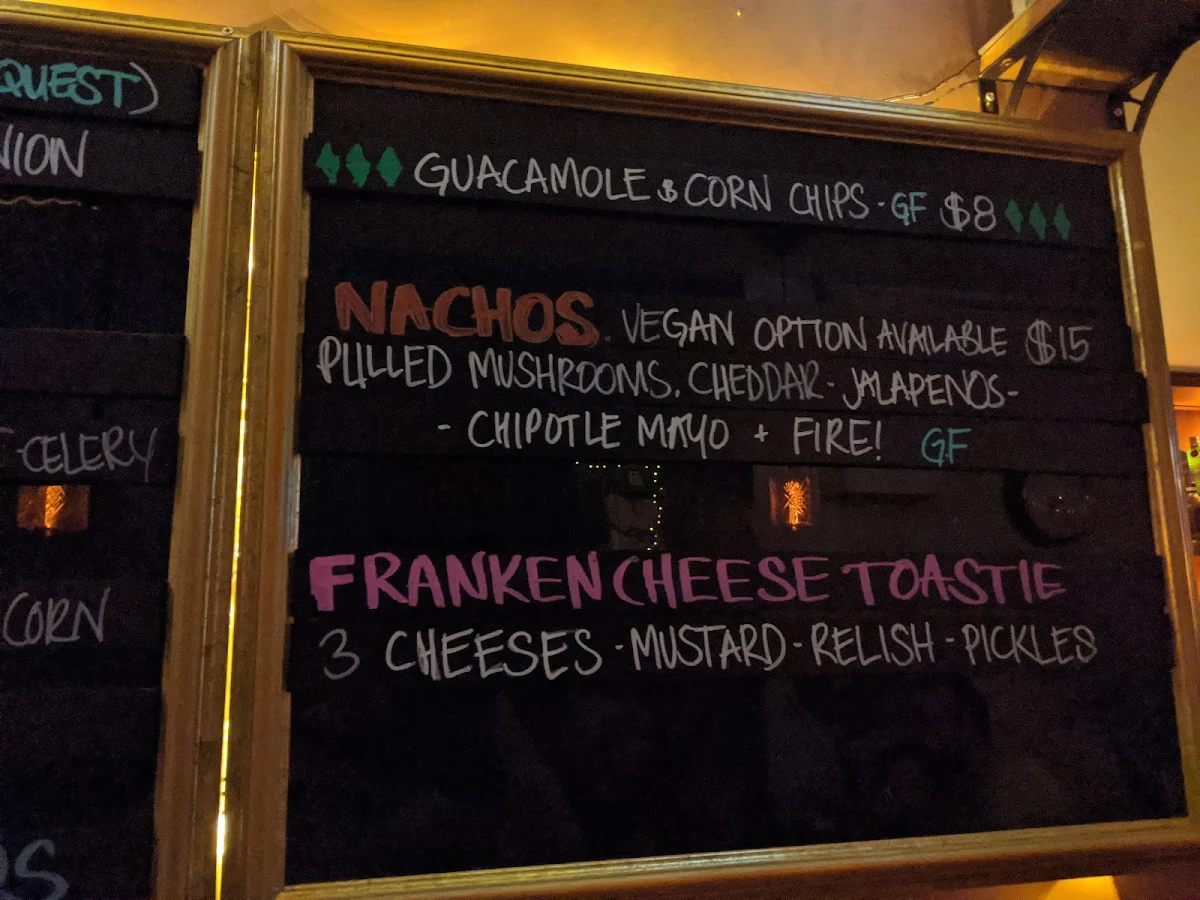 QUEST)
NION
CELERY
CORN
GUACAMOLE & CORN CHIPS - GF $8
NACHOS. VEGAN OPTION AVAILABLE $15
PULLED MUSHROOMS, CHEDDAR - JALAPENOS -
- CHIPOTLE MAYO + FIRE! GF
FRANKEN CHEESE TOASTIE
3 CHEESES - MUSTARD - RELISH - PICKLES